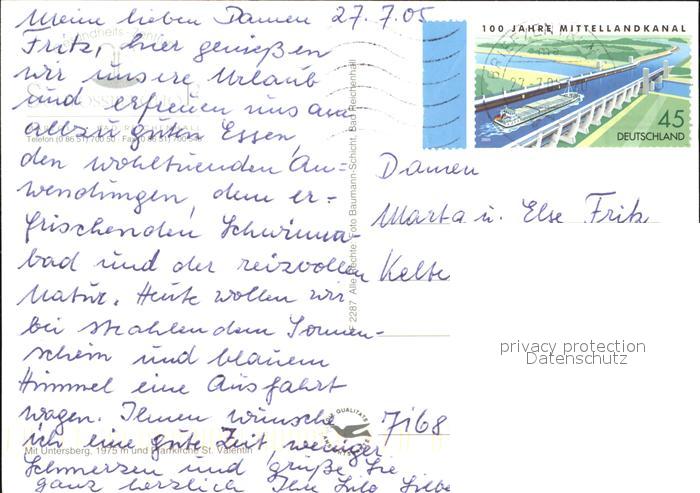 Meine lieben Damen 27.7.05
Fritz, hier genießen
wir unsere Urlaub
und erfreuen uns am
allzu guten Essen,
den wohltuenden An-
wendungen, dem er-
frischenden Schwimm-
bad und der reizvollen
Natur. Heute wollen wir
bei strahlendem Sonnen-
schein und blauem
Himmel eine Ausfahrt
wagen. Ihnen wünsche
ich eine gute Zeit, weniger
Schmerzen und grüße Sie
ganz herzlich Ihre
Telefon (0 86 51) 700 50 · Fax
Mit Untersberg, 1975 m und Pfarrkirche St. Valentin
2287 Alle Rechte: Foto Baumann-Schicht, Bad Reichenhall
QUALITÄTS
100 JAHRE MITTELLANDKANAL
45
DEUTSCHLAND
Damen
Marta u. Else Fritz
7168
privacy protection
Datenschutz